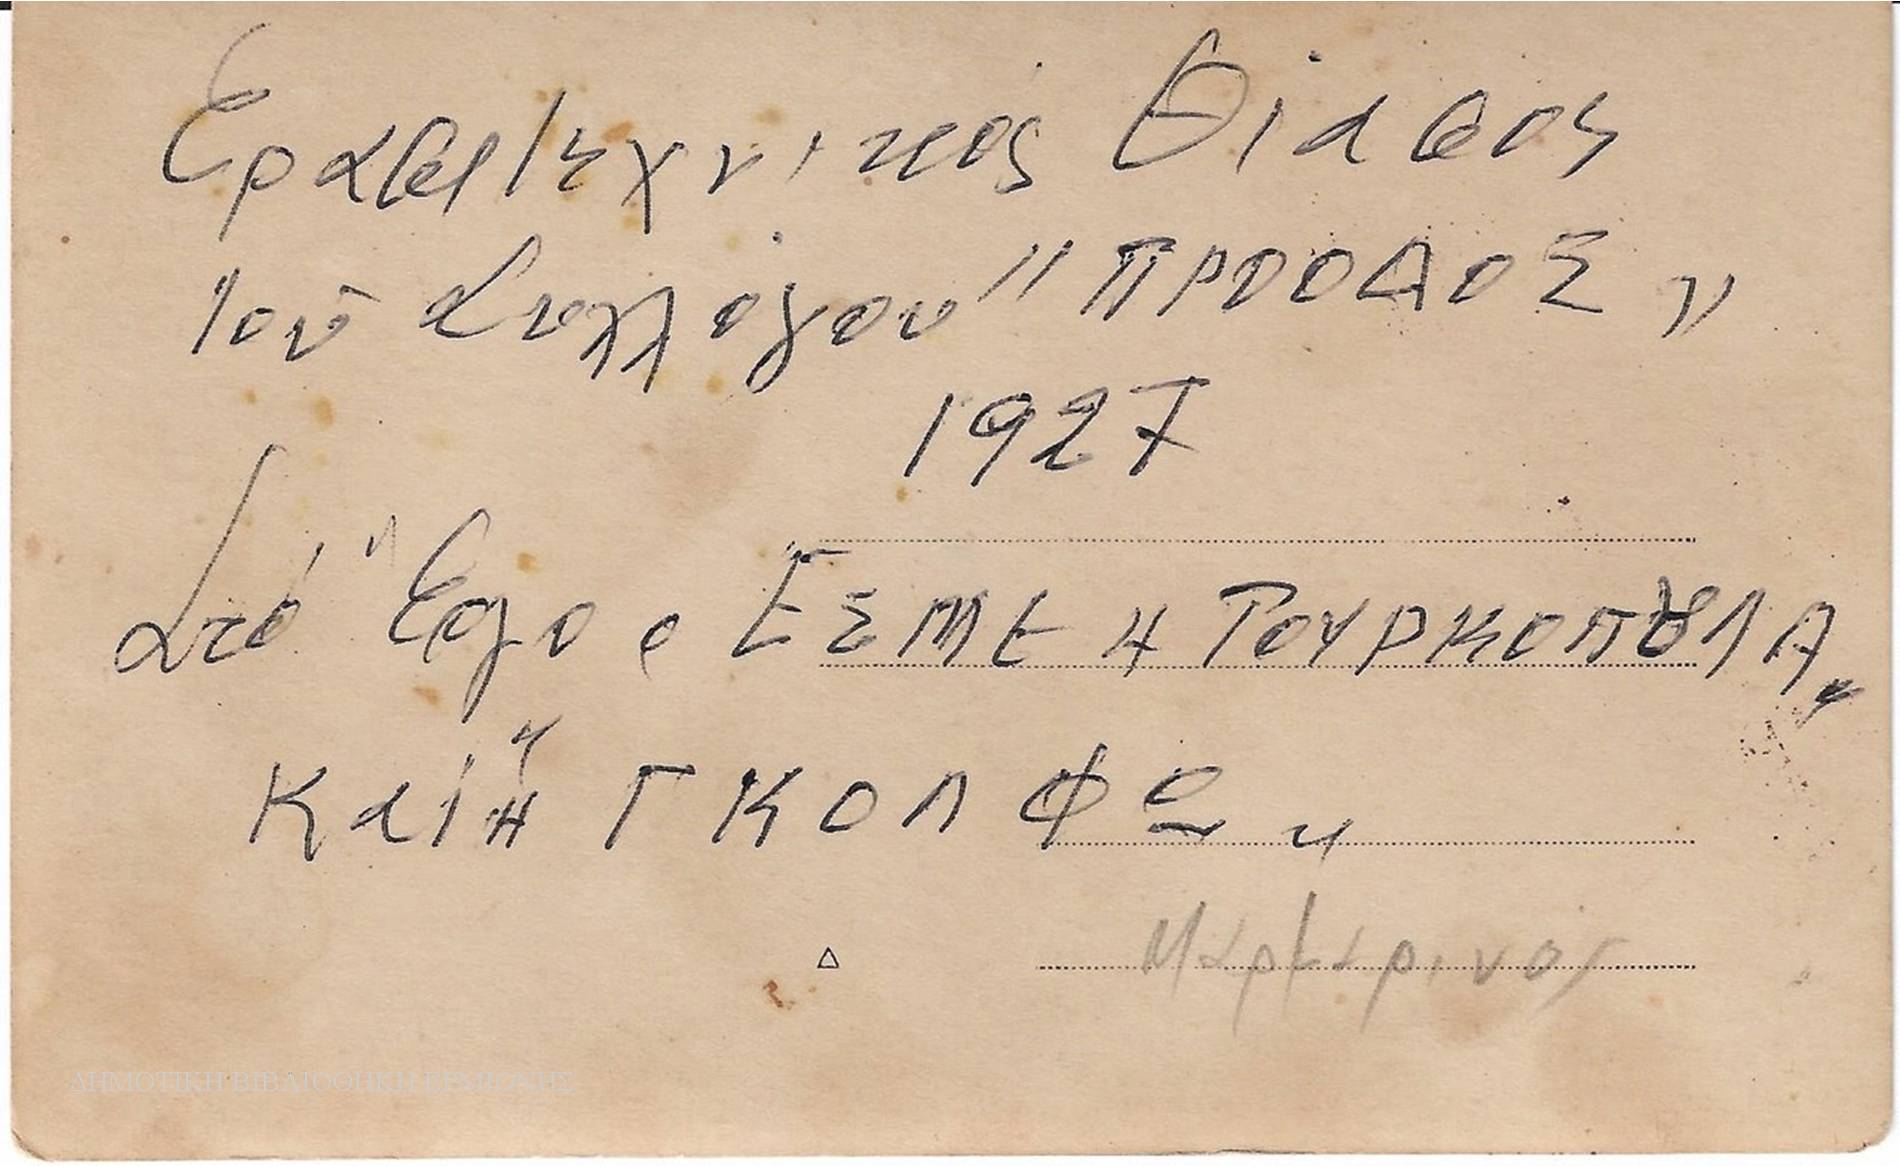 Ερασιτεχνικός Θίασος
τοῦ Συλλόγου "ΠΡΟΟΔΟΣ"
1927
Στό Ἔργο ΕΣΜΕ Η ΤΟΥΡΚΟΠΟΥΛΑ,
Καί Η ΓΚΟΛΦΩ "
Μαρμαρινός
ΔΗΜΟΤΙΚΗ ΒΙΒΛΙΟΘΗΚΗ ΕΡΜΙΟΝΗΣ